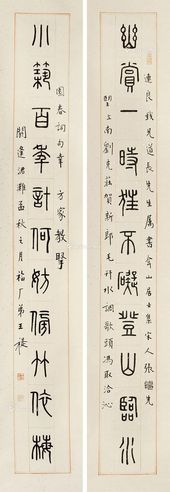 連良我兄道長先生屬書弇山居士集宋人張繼先
幽賞一時狂不礙登山臨水
望江南劉克莊賀新郎毛幵水調歌頭馮取洽沁
園春詞句奉 方家教
小築百年計何妨傍竹依梅
閼逢涒灘孟秋之月福厂弟王禔